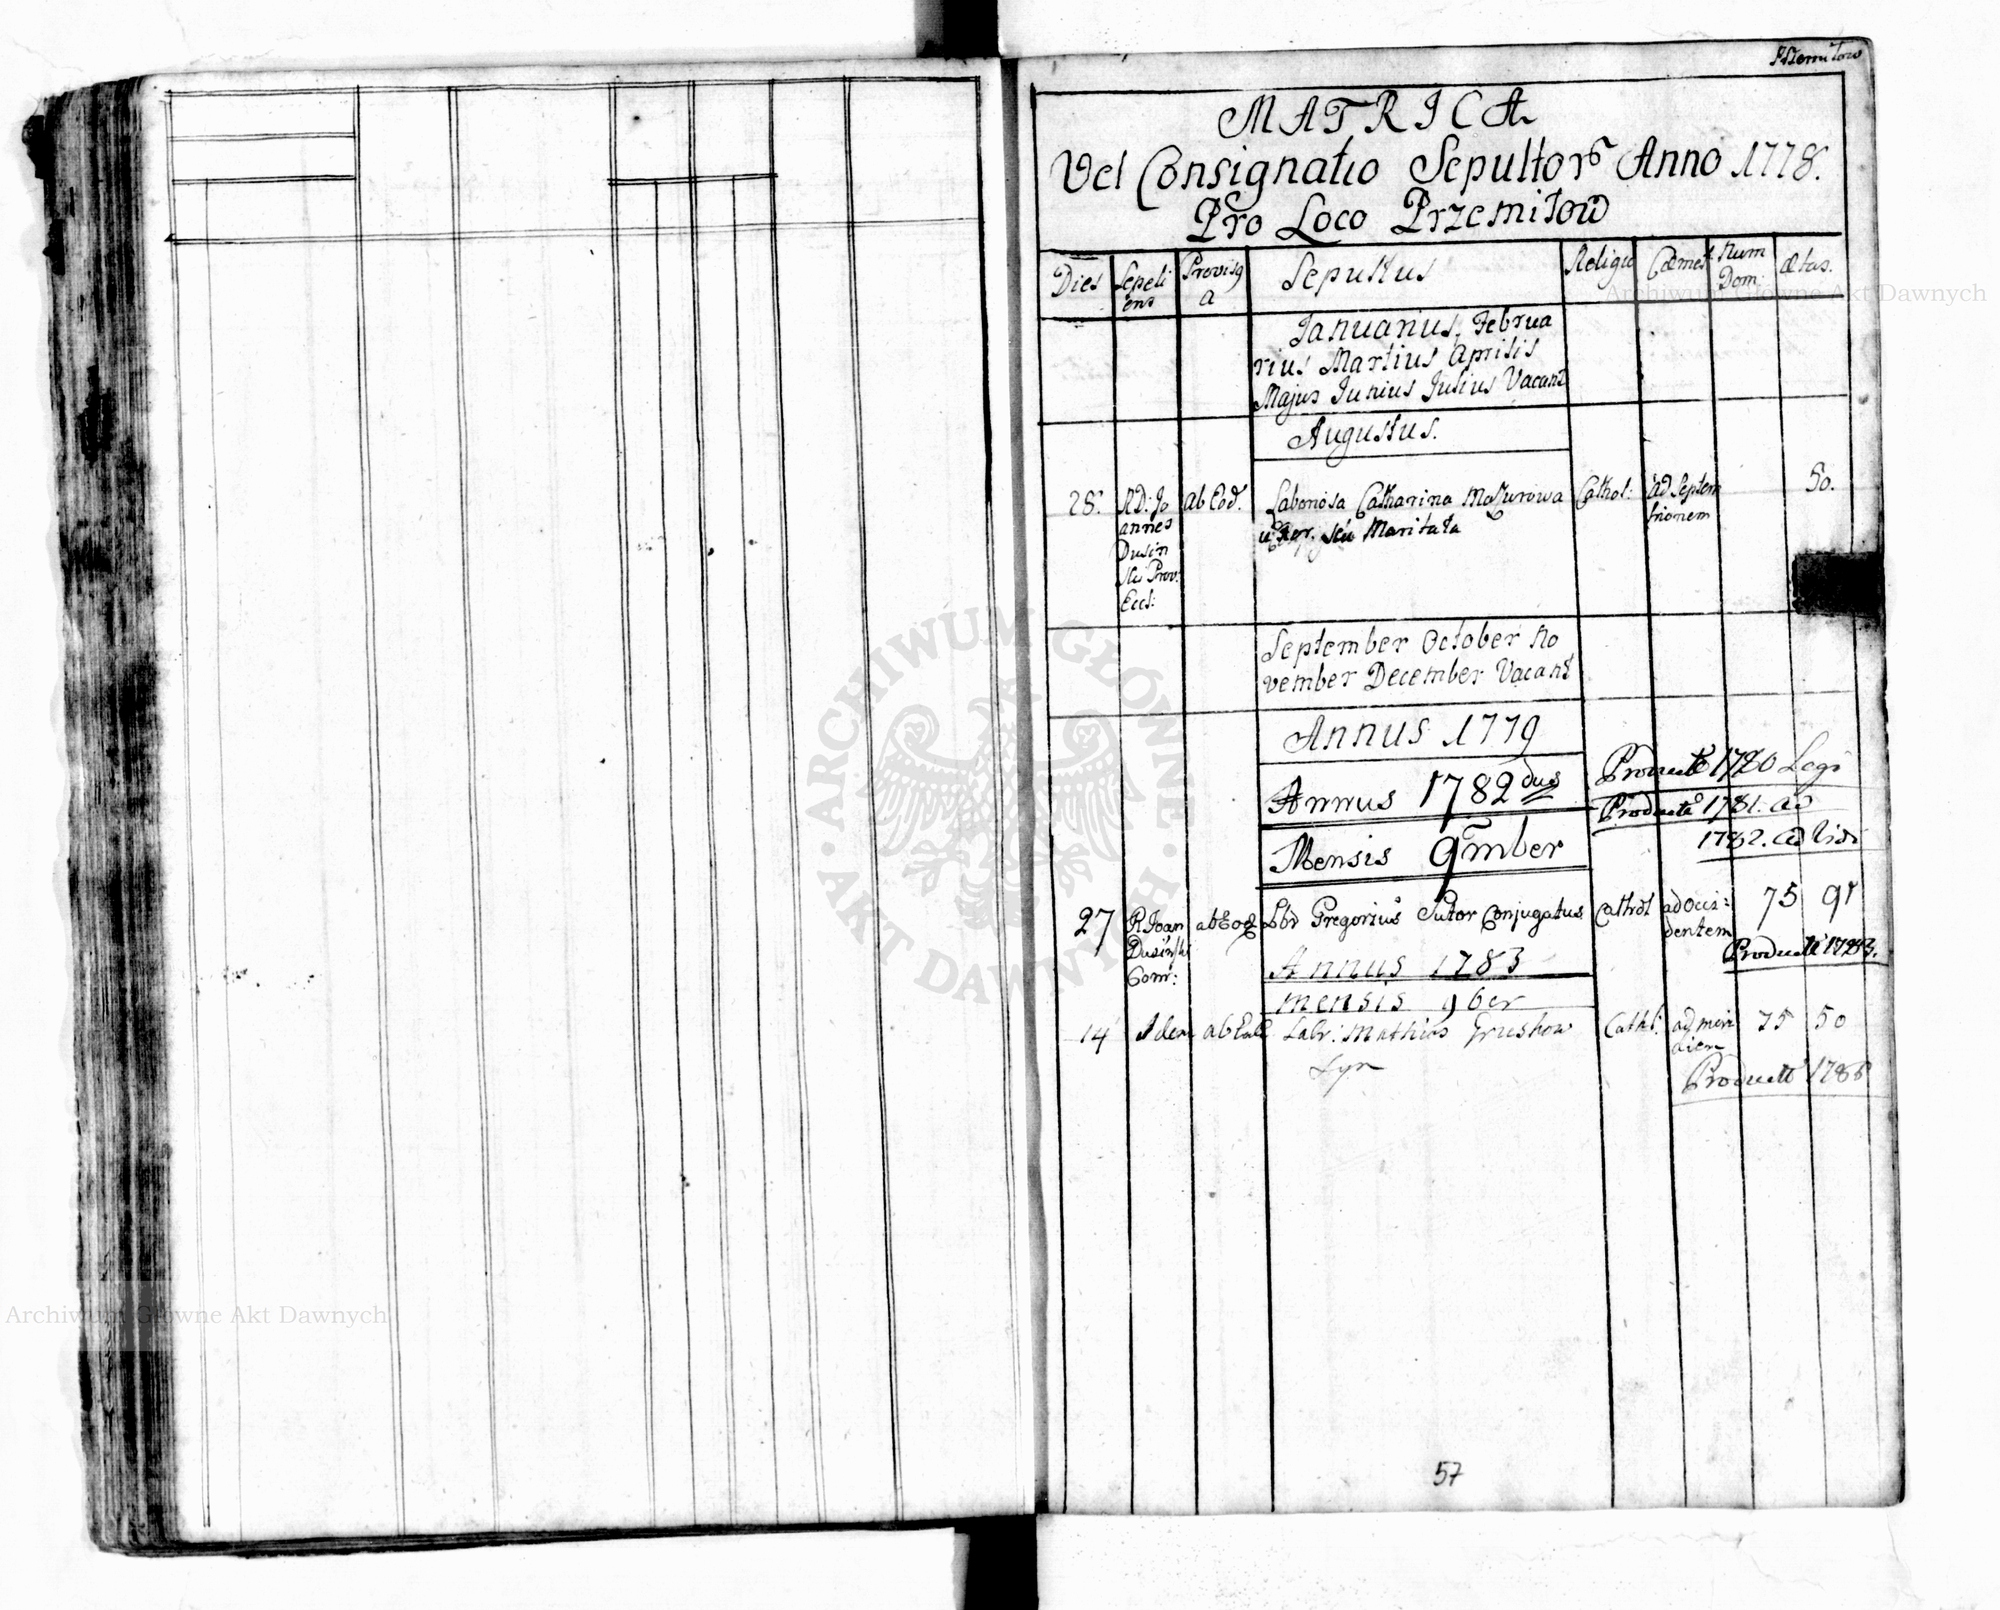 Przemiłow
MATRICA
Vel Consignatio Sepultor Anno 1778.
Pro Loco Przemiłow
Dies
Sepeli
ens
Provisq
a
Sepultus
Religio
Cœmet
Num
Dom:
Ætas.
Januarius, Februa
rius Martius Aprilis
Majus Junius Julius Vacant
Augustus.
28.
R.D: Jo
annes
Dusin
ski Prov:
Eccl:
ab Eod.
Laboriosa Catharina Mazurowa
seu Maritata
Cathol:
ad Septem
trionem
50.
September October No
vember December Vacant
Annus 1779
Annus 1782 dus
Mensis 9mber
Product 1780 Legi
Producte 1781. ad
1782. ad
27
R. Joan
Dusiński
Com:
ab Eod
Lbr Gregorius Sutor Conjugatus
Cathol
ad Occi=
dentem
75
91
Product 1783.
Annus 1783
mensis 9ber
14
Idem
ab Eod
Labr: Mathias Gruskow
Syn
Cathl:
ad meri
diem
75
50
Product 1785
57
ARCHIWUM GŁÓWNE
AKT DAWNYCH
Archiwum Główne Akt Dawnych
Archiwum Główne Akt Dawnych